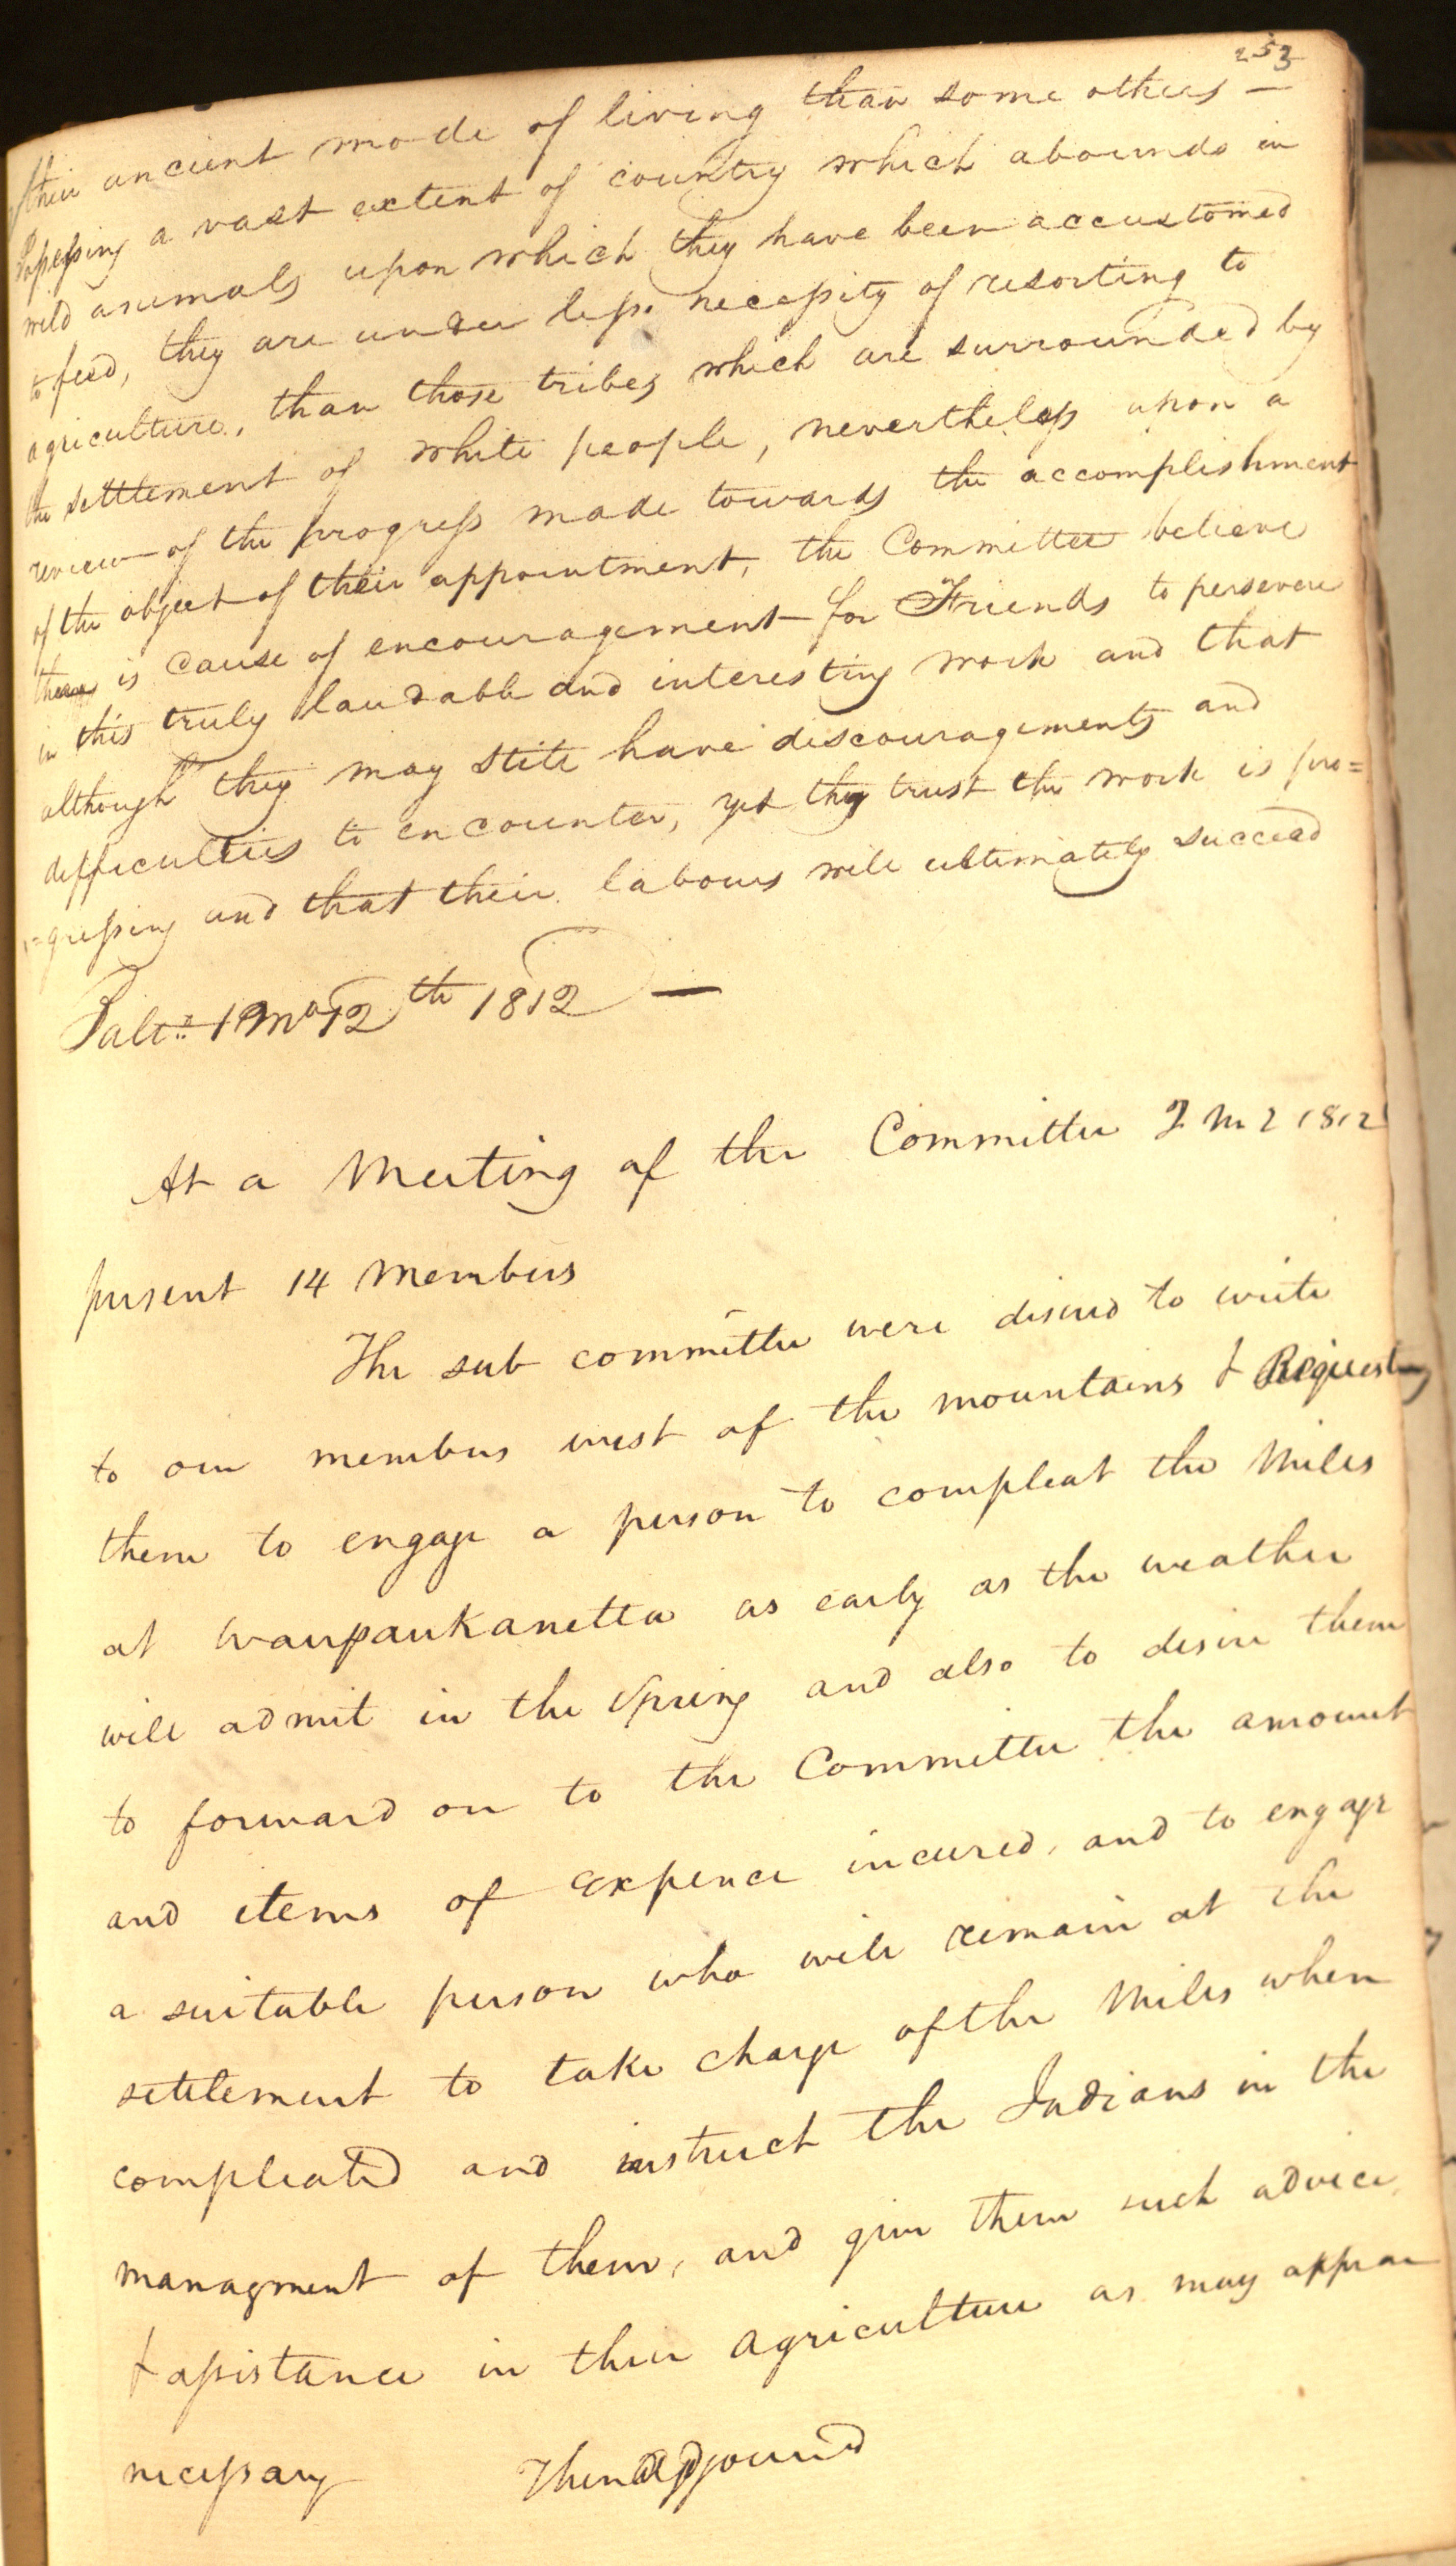 253
their ancient mode of living than some others —
Possessing a vast extent of country which abounds in
wild animals upon which they have been accustomed
to feed, they are under less necessity of resorting to
agriculture, than those tribes which are surrounded by
the settlement of white people, nevertheless upon a
review of the progress made towards the accomplishment
of the object of their appointment, the Committee believe
there is cause of encouragement for Friends to persevere
in this truly laudable and interesting work and that
although they may still have discouragements and
difficulties to encounter, yet they trust the work is pro=
=gressing and that their labours will ultimately succeed
Balte. 1 mo 12th 1812 —
At a Meeting of the Committee 2 M 2 1812
present 14 Members
The sub committee were desired to write
to our members west of the mountains & Requesting
them to engage a person to compleat the Mills
at Waupaukanetta as early as the weather
will admit in the Spring and also to desire them
to forward on to the Committee the amount
and items of Expence incured, and to engage
a suitable person who will remain at the
settlement to take charge of the Mills when
compleated and instruct the Indians in the
managment of them, and give them such advice
& assistance in their agriculture as may appear
necessary Then adjourned